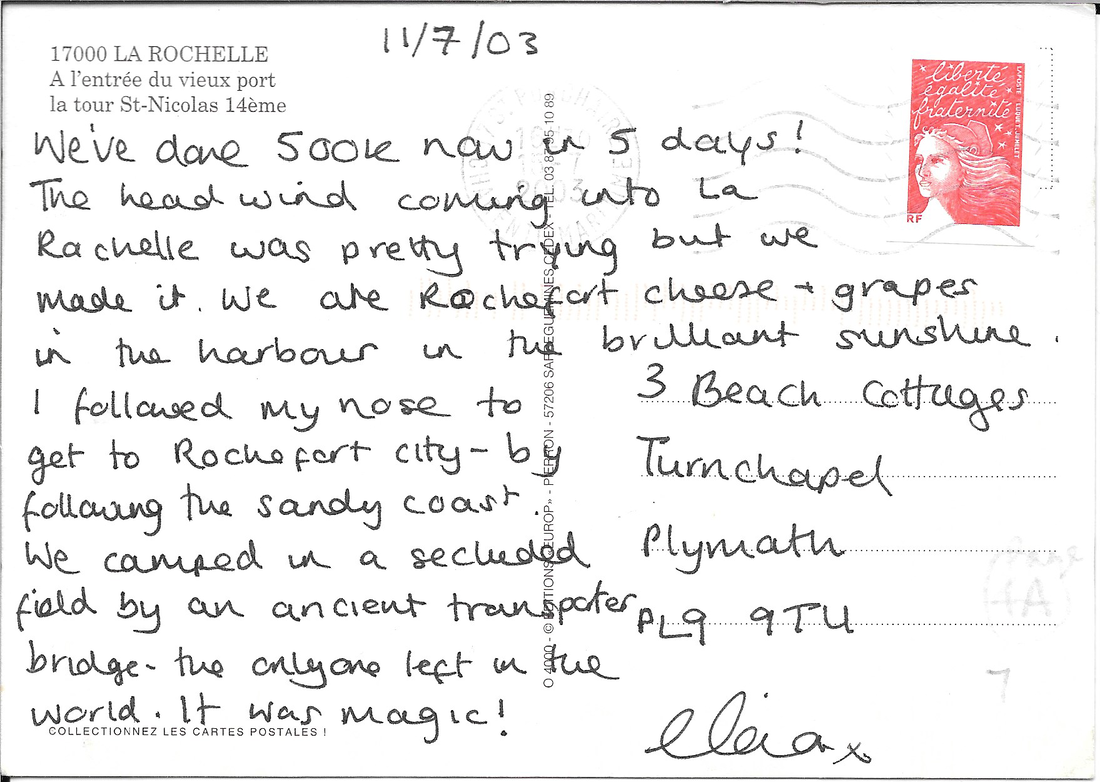 17000 LA ROCHELLE
A l'entrée du vieux port
la tour St-Nicolas 14ème
11/7/03
liberté
égalité
fraternité
LA POSTE
RF
We've done 500k now in 5 days!
The head wind coming into La
Rochelle was pretty trying but we
made it. We ate Rochefort cheese + grapes
in the harbour in the brilliant sunshine.
I followed my nose to
get to Rochefort city - by
following the sandy coast.
We camped in a secluded
field by an ancient transporter
bridge - the only one left in the
world. It was magic!
COLLECTIONNEZ LES CARTES POSTALES !
3 Beach Cottages
Turnchapel
Plymouth
PL9 9TU
x
2003